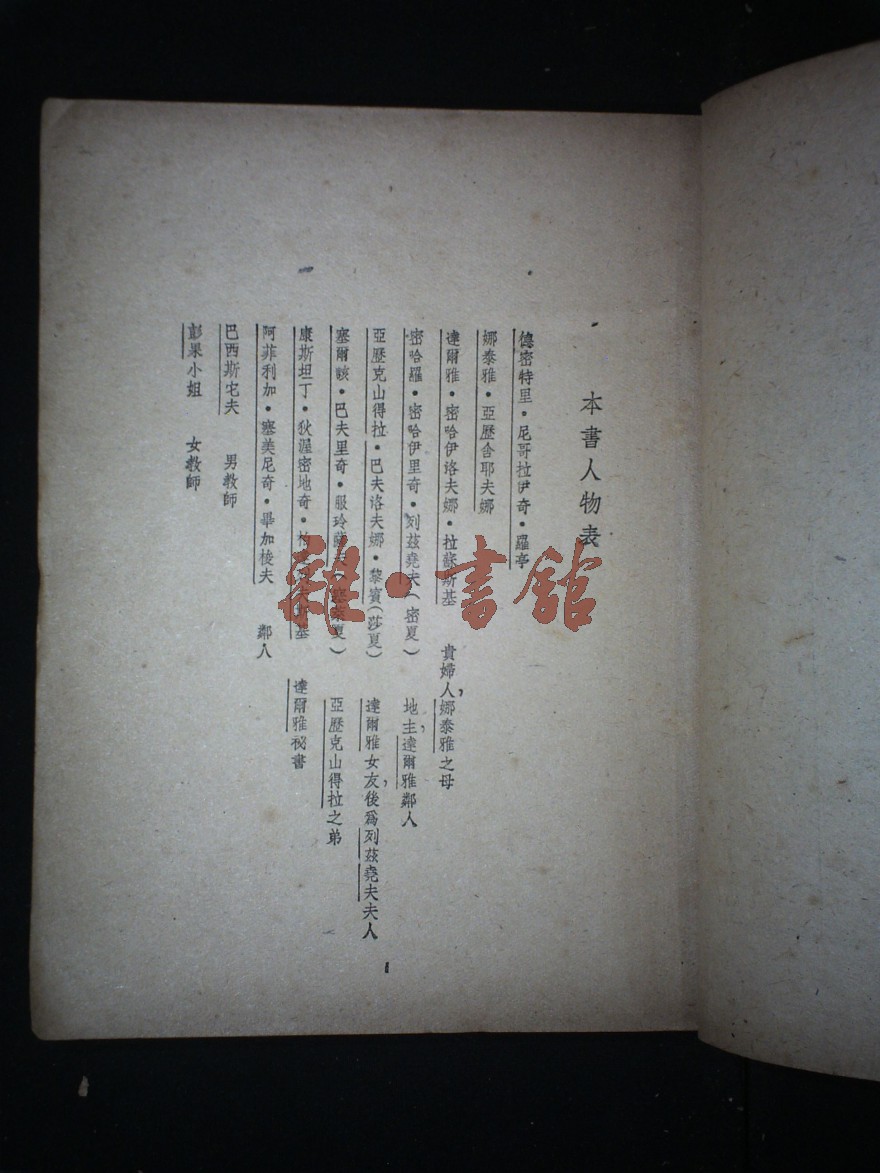 本書人物表
德密特里・尼哥拉伊奇・羅亭
娜泰雅・亞歷舍耶夫娜
達爾雅・密哈伊洛夫娜・拉蘇斯基 貴婦人，娜泰雅之母
密哈羅・密哈伊里奇・列茲堯夫（密夏） 地主，達爾雅鄰人
亞歷克山得拉・巴夫洛夫娜・黎賓（莎夏） 達爾雅女友，後爲列茲堯夫夫人
塞爾該・巴夫里奇・服玲 夏） 亞歷克山得拉之弟
康斯坦丁・狄渥密地奇・ 斯基 達爾雅祕書
阿菲利加・塞美尼奇・畢加梭夫 鄰人
巴西斯宅夫 男教師
彭果小姐 女教師
1
雜・書館